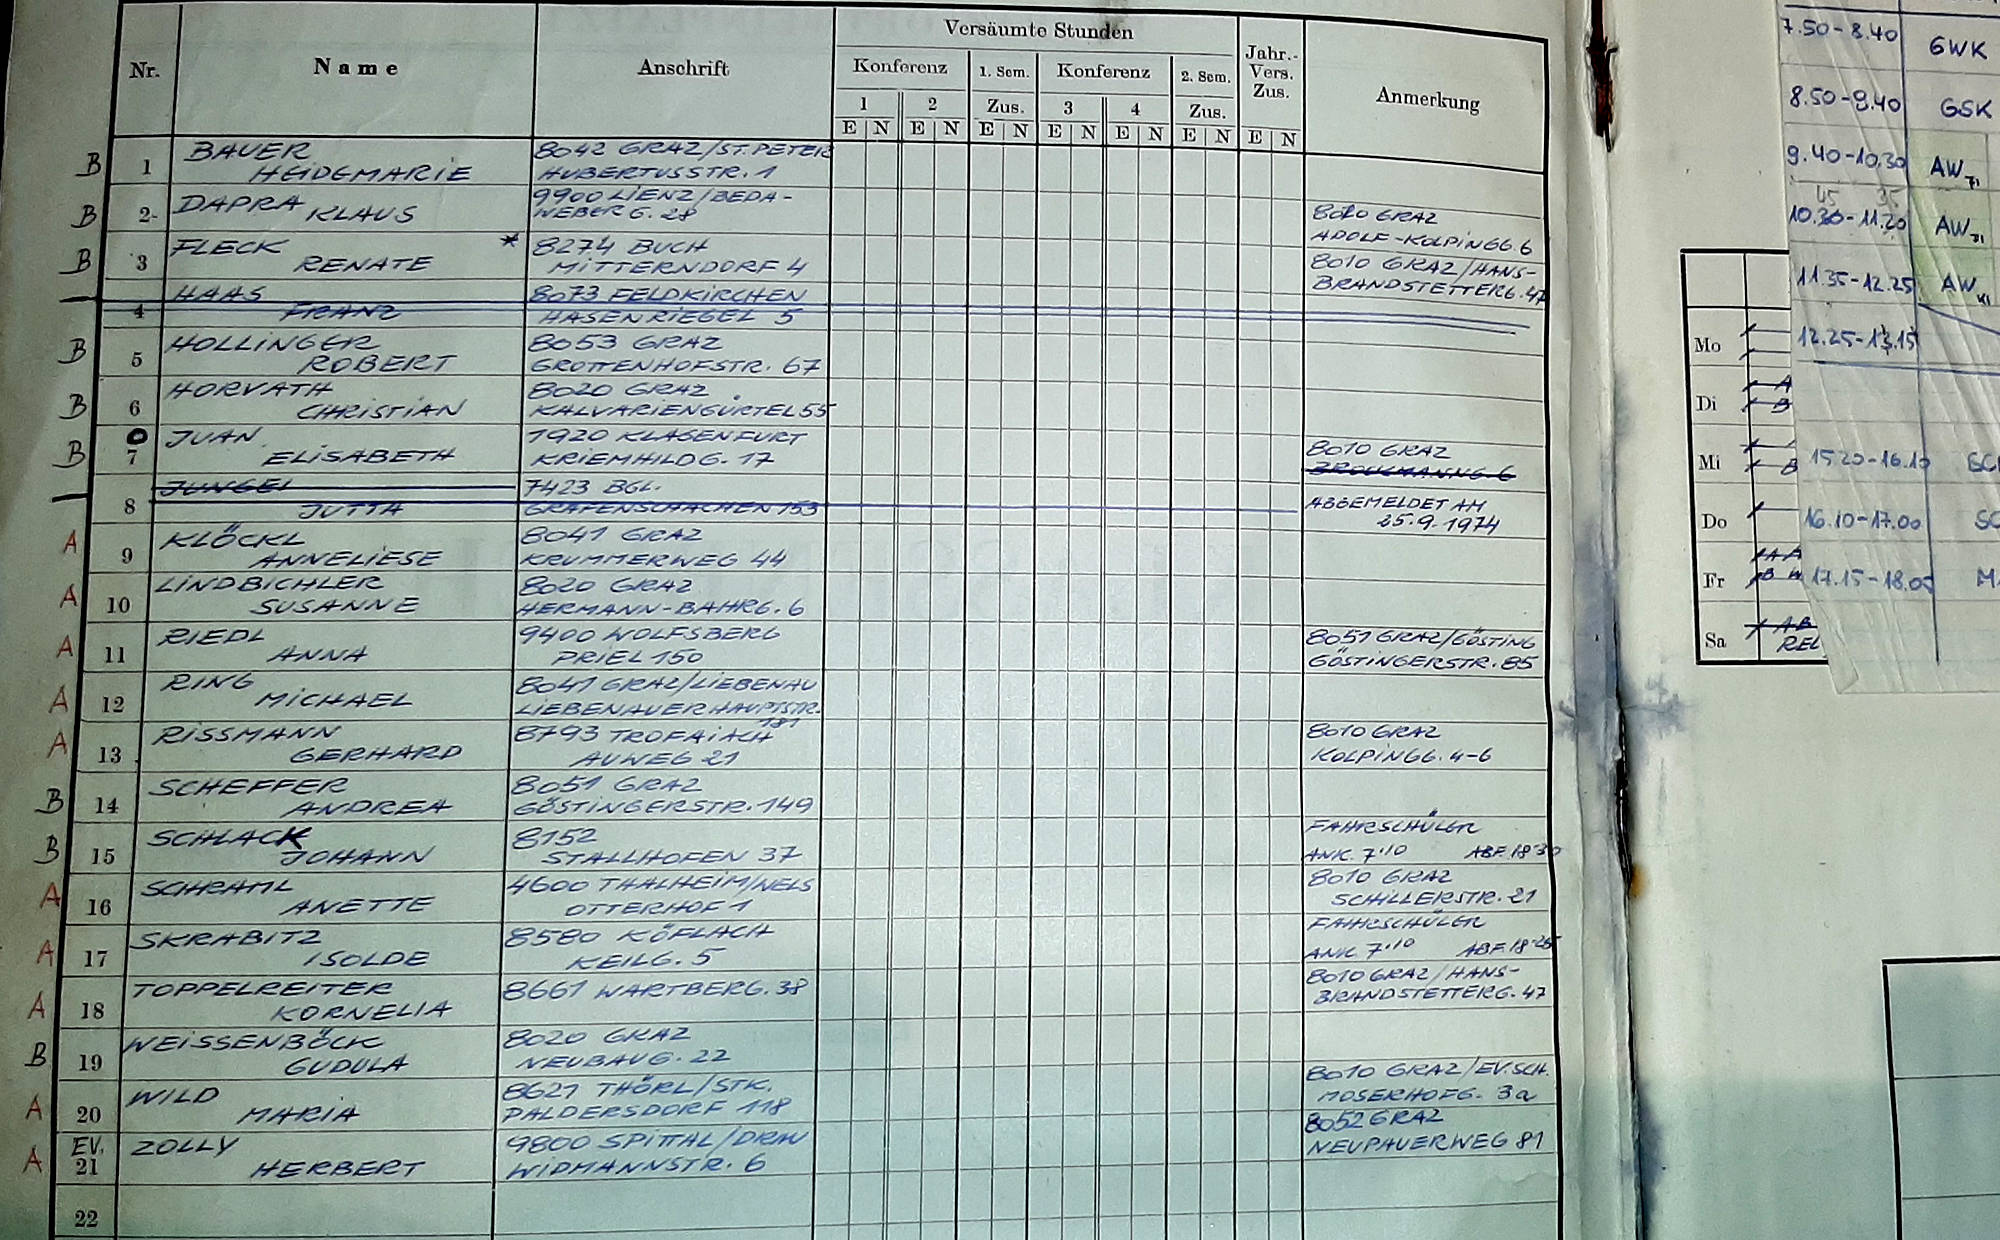 Nr.
Name
Anschrift
Versäumte Stunden
Konferenz
1. Sem.
Konferenz
2. Sem.
Jahr.-
Vers.
Zus.
Anmerkung
1 2 Zus. 3 4 Zus.
E N E N E N E N E N E N E N
B 1 BAUER 8042 GRAZ/ST. PETER
HEIDEMARIE HUBERTUSSTR. 1
B 2 DAPRA KLAUS 9900 LIENZ/BEDA-
WEBER G. 28
8010 GRAZ
ADOLF-KOLPINGG. 6
B 3 FLECK * 8274 BUCH
RENATE MITTERNDORF 4
8010 GRAZ/HANS-
BRANDSTETTERG. 47
4 HAAS 8073 FELDKIRCHEN
FRANZ HASENRIEGEL 5
B 5 HOLLINGER 8053 GRAZ
ROBERT GROTTENHOFSTR. 67
B 6 HORVATH 8020 GRAZ
CHRISTIAN KALVARIENGÜRTEL 55
B 7 JUAN 1920 KLAGENFURT
ELISABETH KRIEMHILDG. 17
8010 GRAZ
8 JUNGEL 7423 BGL.
JUTTA GRAFENSCHACHEN 153
ABGEMELDET AM
25.9.1974
A 9 KLÖCKL 8041 GRAZ
ANNELIESE KRUMMERWEG 44
A 10 LINDBICHLER 8020 GRAZ
SUSANNE HERMANN-BAHRG. 6
A 11 RIEDL 9400 WOLFSBERG
ANNA PRIEL 150
8051 GRAZ/GÖSTING
GÖSTINGERSTR. 85
A 12 RING 8041 GRAZ/LIEBENAU
MICHAEL LIEBENAUERHAUPTSTR.
181
A 13 RISSMANN 8793 TROFAIACH
GERHARD AUWEG 21
8010 GRAZ
KOLPINGG. 4-6
B 14 SCHEFFER 8051 GRAZ
ANDREA GÖSTINGERSTR. 149
B 15 SCHLACK 8152
JOHANN STALLHOFEN 37
FAHRSCHÜLER
ANK. 7'10 ABF. 18'30
A 16 SCHRAML 4600 THALHEIM/WELS
ANETTE OTTERHOF 1
8010 GRAZ
SCHILLERSTR. 21
A 17 SKRABITZ 8580 KÖFLACH
ISOLDE KEILG. 5
FAHRSCHÜLER
ANK. 7'10 ABF. 18'25
A 18 TOPPELREITER 8661 WARTBERG. 38
KORNELIA
8010 GRAZ/HANS-
BRANDSTETTERG. 47
B 19 WEISSENBÖCK 8020 GRAZ
GUDULA NEUBAUG. 22
A 20 WILD 8621 THÖRL/STK.
MARIA PALDERSDORF 118
8010 GRAZ/EV.SCH.
MOSERHOFG. 3a
EV.
A 21 ZOLLY 9800 SPITTAL/DRAU
HERBERT WIDMANNSTR. 6
8052 GRAZ
NEUPAUERWEG 81
22
7.50-8.40 GWK
8.50-9.40 GSK
9.40-10.30 AW
45 35
10.30-11.20 AW
11.35-12.25 AW
12.25-13.15
15.20-16.10
16.10-17.00
17.15-18.05
Mo
Di A
B
Mi
B
Do
Fr
Sa AB
REL